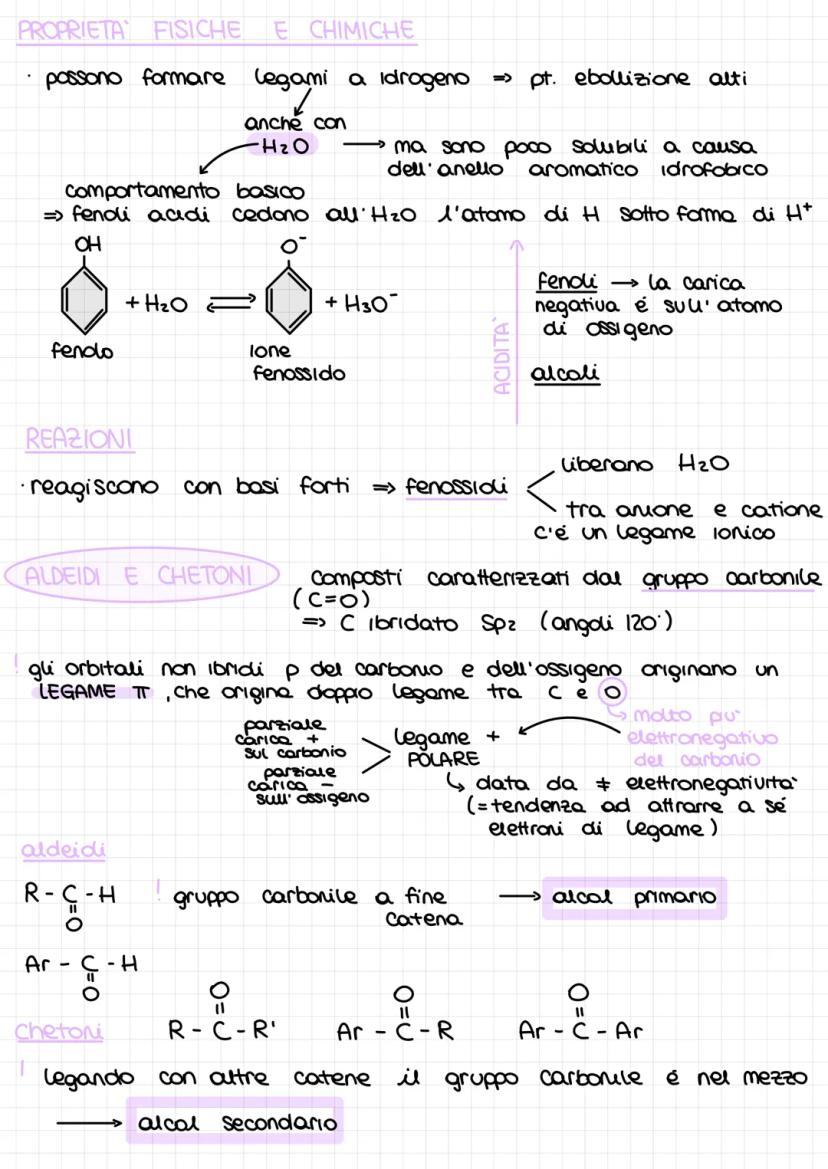 PROPRIETA' FISICHE E CHIMICHE
· possono formare legami a idrogeno => pt. ebollizione alti
anche con
H2O → ma sono poco solubili a causa
dell'anello aromatico idrofobico
comportamento basico
=> fenoli acidi cedono all'H2O l'atomo di H sotto forma di H+
OH O-
+ H2O ⇌ + H3O-
fenolo
ione
fenossido
ACIDITA'
fenoli → la carica
negativa é sull'atomo
di ossigeno
alcoli
REAZIONI
· reagiscono con basi forti => fenossidi
liberano H2O
tra anione e catione
c'é un legame ionico
ALDEIDI E CHETONI
composti caratterizzati dal gruppo carbonile
(C=O)
=> C ibridato sp2 (angoli 120°)
! gli orbitali non ibridi p del carbonio e dell'ossigeno originano un
LEGAME π, che origina doppio legame tra C e O
molto piu'
elettronegativo
del carbonio
parziale
carica +
sul carbonio
parziale
carica -
sull'ossigeno
legame +
POLARE
↳ data da ≠ elettronegativita'
(= tendenza ad attrarre a sé
elettroni di legame)
aldeidi
R - C - H
=
O
! gruppo carbonile a fine
catena
→ alcol primario
Ar - C - H
=
O
chetoni
O O O
= = =
R - C - R' Ar - C - R Ar - C - Ar
! legando con altre catene il gruppo carbonile é nel mezzo
→ alcol secondario